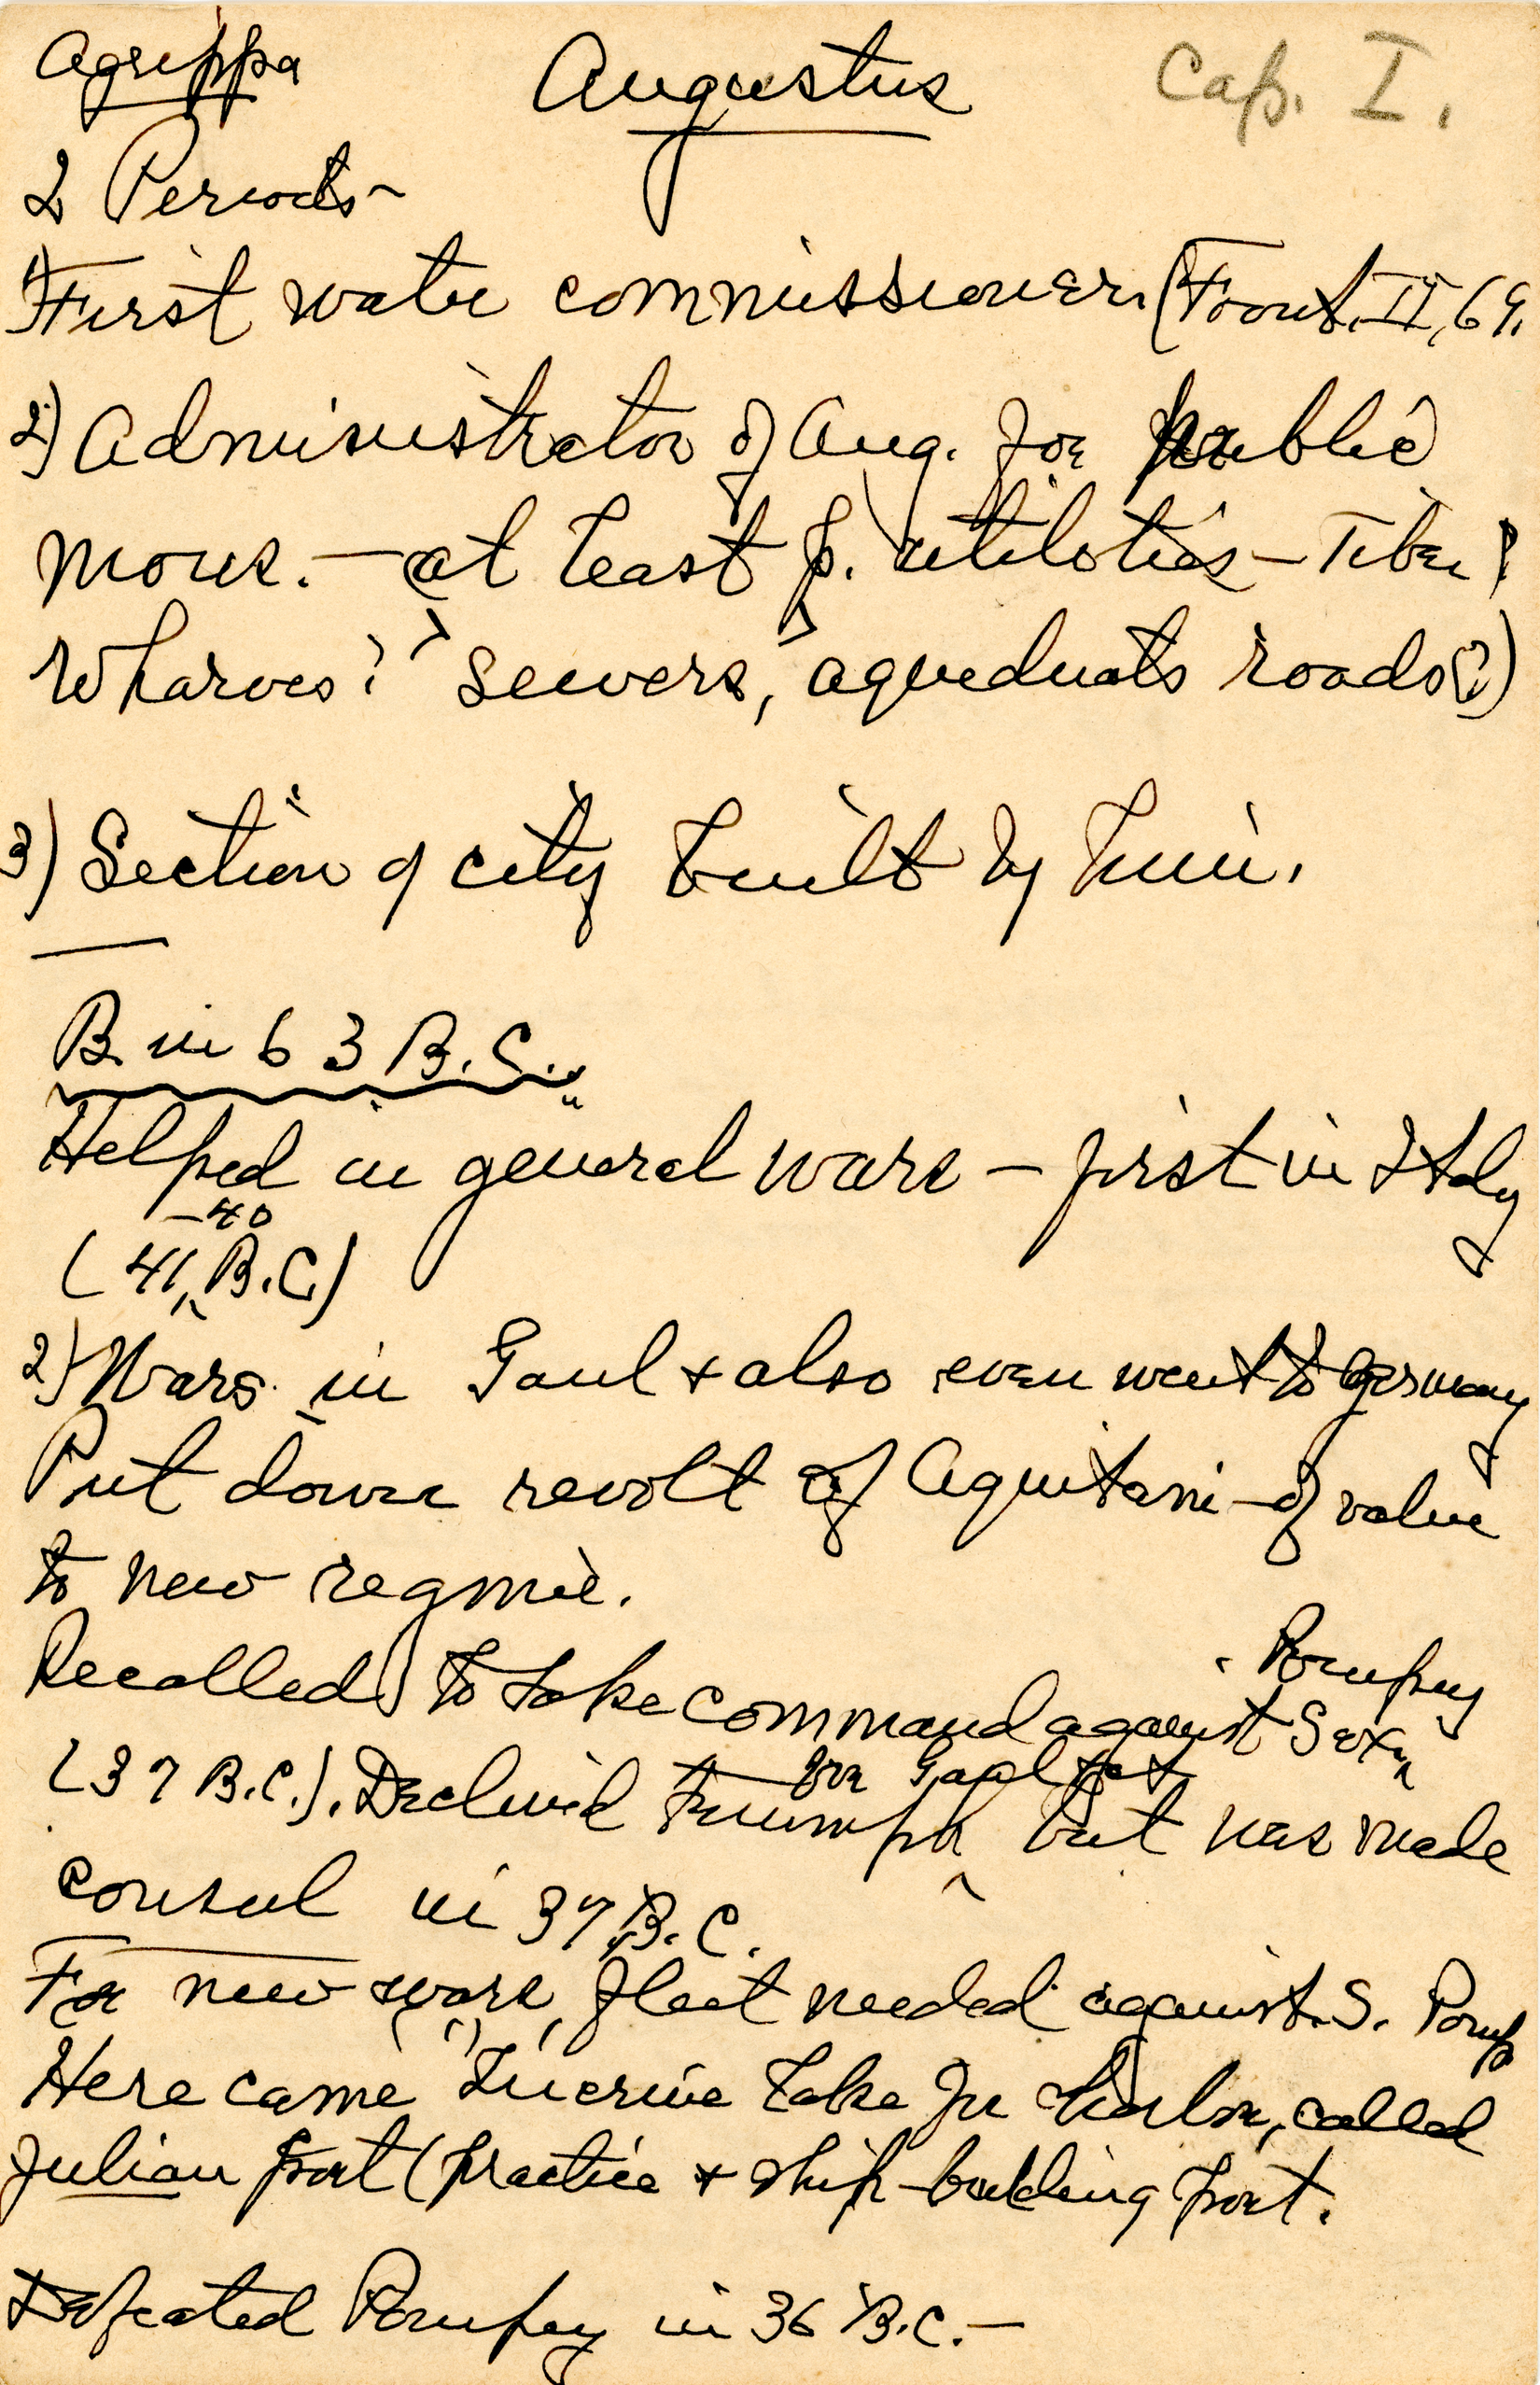 Agrippa Augustus Cap. I.
2 Periods -
1) First water commissioner. (Front. II, 69.
2) Administrator of Aug. for public
mons. - at least p. utilities - Tiber?
Wharves? sewers, aqueducts roads(?)
3) Section of city built by him.
B. in 63 B.C.
Helped in general wars - first in Italy
-40
(41 B.C.)
2) Wars in Gaul + also even went to Germany
Put down revolt of Aquitani - of value
to new regime.
Pompey
Recalled to take command against Sext.
for Gaul
(37 B.C.). Declined triumph but was made
consul in 37 B.C.
For new wars, fleet needed against S. Pomp
Here came Lucrine Lake for harbor, called
Julian port (practice + ship-building port.
Defeated Pompey in 36 B.C. -